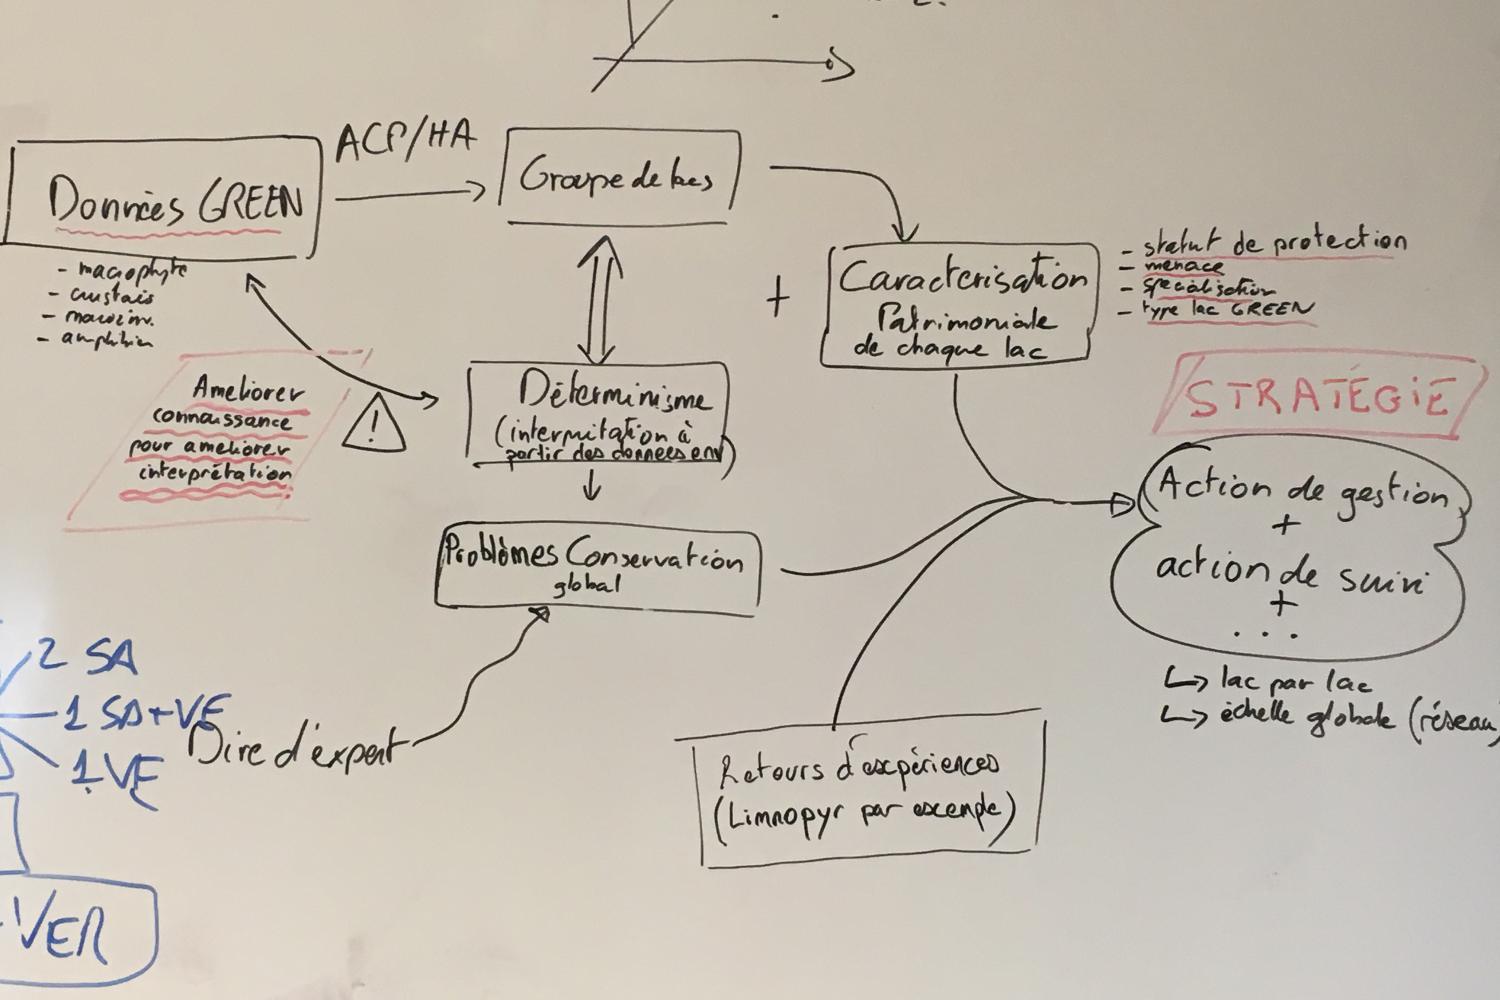 ACP/HA
Données GREEN
- macrophyte
- crustais
- macroinv.
- amphibien
Groupe de lacs
+
Caracterisation
Patrimoniale
de chaque lac
- statut de protection
- menace
- spécialisation
- type lac GREEN
Ameliorer
connaissance
pour ameliorer
interprétation
!
Déterminisme
(interprétation à
partir des données env)
STRATÉGIE
Action de gestion
+
action de suivi
+
...
↳ lac par lac
↳ échelle globale (réseau)
Problèmes Conservation
global
2 SA
1 SA+VE
1 VE
Dire d'expert
Retours d'expériences
(Limnopyr par exemple)
VER